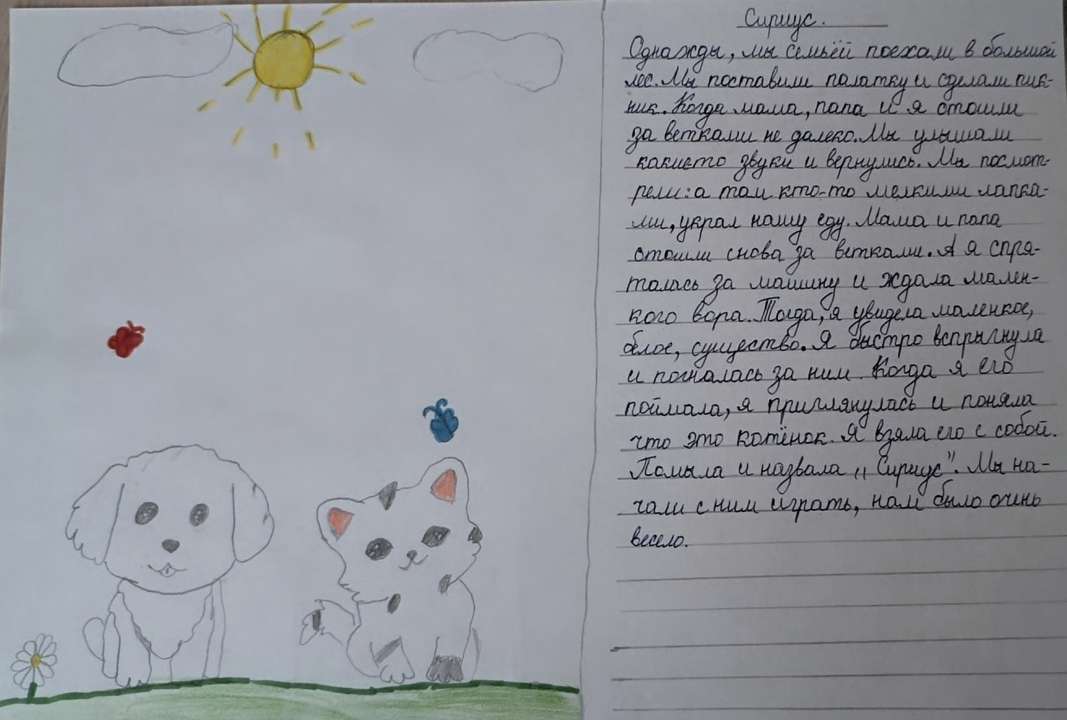 Сириус.
Однажды, мы семьёй поехали в большой
лес. Мы поставили палатку и сделали пик-
ник. Когда мама, папа и я отошли
за ветками не далеко. Мы улышали
какието звуки и вернулись. Мы посмот-
рели: а там кто-то мелкими лапка-
ми, украл нашу еду. Мама и папа
отошли снова за ветками. А я спря-
талась за машину и ждала мален-
кого вора. Тогда, я увидела маленкое,
белое, существо. Я быстро вспрыгнула
и погналась за ним. Когда я его
поймала, я пригляянулась и поняла
что это котёнок. Я взяла его с собой.
Помыла и назвала ,,Сириус". Мы на-
чали с ним играть, нам было очинь
весело.